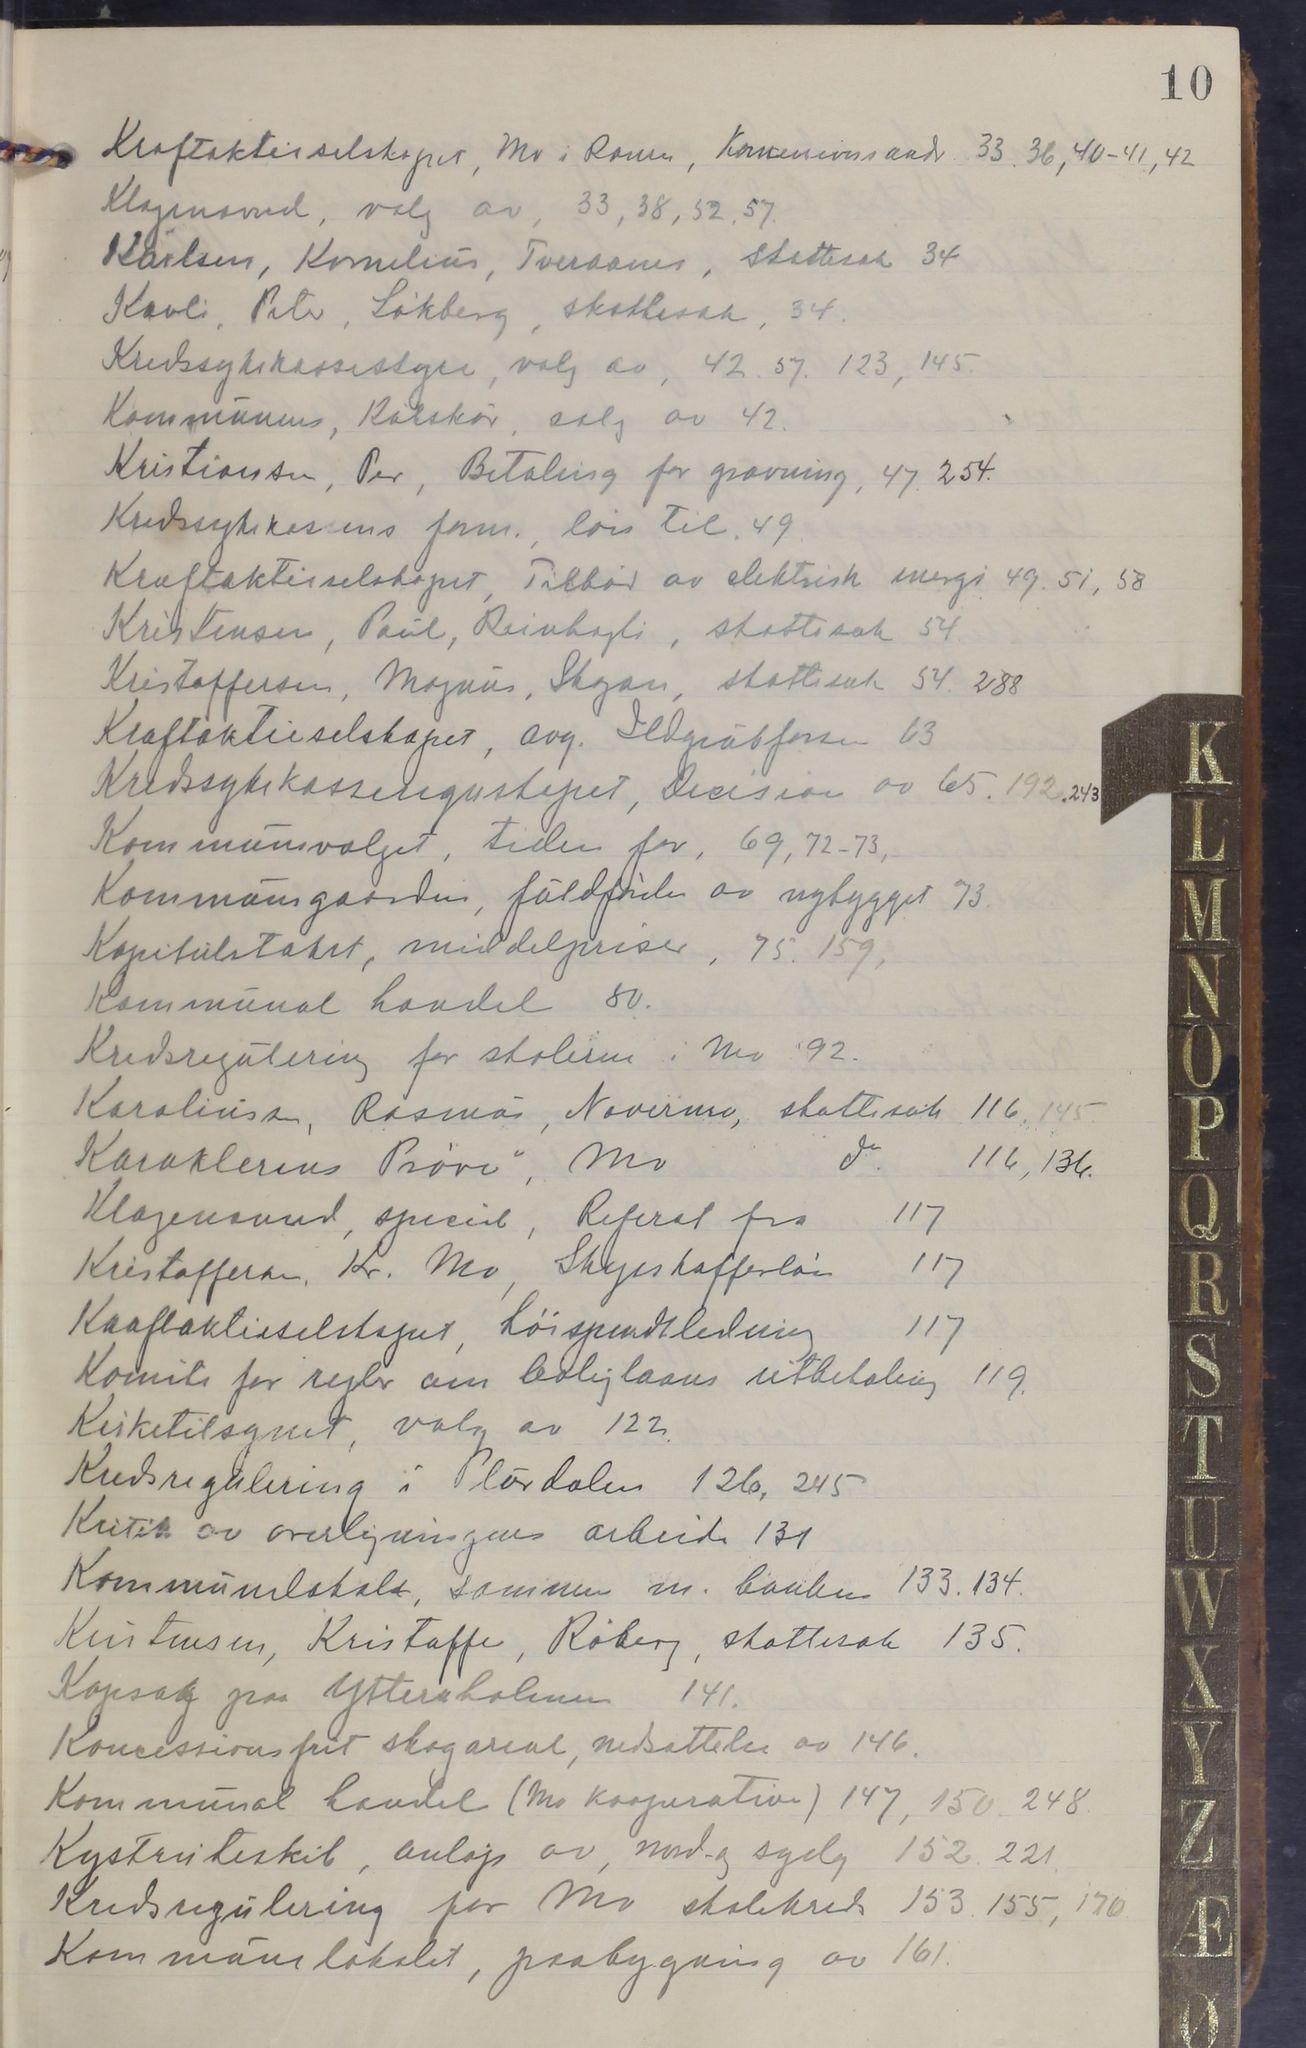 10
Kraftaktieselskapet, Mo i Ranen, Koncessionsands. 33. 36, 40-41, 42
Klagenævnd, valg av, 33, 38, 52, 57.
Karlsen, Kornelius, Tveraanes, skattesak 34
Kavli, Peter, Løkberg, skattesak, 34.
Kredssykekassestyre, valg av, 42. 57. 123, 145.
Kommunens, salg av 42.
Kristiansen, Per, Betaling for gravning, 47. 254.
Kredssykekassens form., løn til. 49.
Kraftaktieselskapet, Tilbud av elektrisk energi 49. 51, 58
Kristensen, Paul, skattesak 54
Kristoffersen, Magnus, skattesak 54. 288
Kraftaktieselskapet, ang. Ildgrubfossen 63
Kredssykekasseregnskapet, Decision av 65. 192. 243
Kommunevalget, tiden for, 69, 72-73,
Kommunegaarden, fuldførelse av nybygget 73.
Kapitelstakst, middelpriser, 75. 159,
Kommunal handel 80.
Kredsregulering for skolerne i Mo 92.
Karoliussen, Rasmus, Navernes, skattesak 116. 145
Karaklerens Prøve", Mo do. 116, 136.
Klagenævnd, special, Referat fra 117
Kristoffersen, Kr. Mo, Skysskafferløn 117
Kraftaktieselskapet, høispændtledning 117
Komite for regler om boliglaans utbetaling 119.
Kirketilsynet, valg av 122.
Kredsregulering i Plurdalen 126, 245
Kritik av overligningens arbeide 131
Kommunelokale, sammen m. banken 133. 134.
Kristensen, Kristoffer, Røberg, skattesak 135.
Kapsak paa Ytterenholmen 141.
Koncessionsfrit skogareal, nedsættelse av 146.
Kommunal handel (Mo kooperative) 147, 150 248.
Kystruteskib, anløp av, nord- og sydg 152. 221.
Kredsregulering for Mo skolekreds 153. 155, 170
Kommunelokalet, paabygning av 161.
K
L
M
N
O
P
Q
R
S
T
U
W
X
Y
Z
Æ
Ø